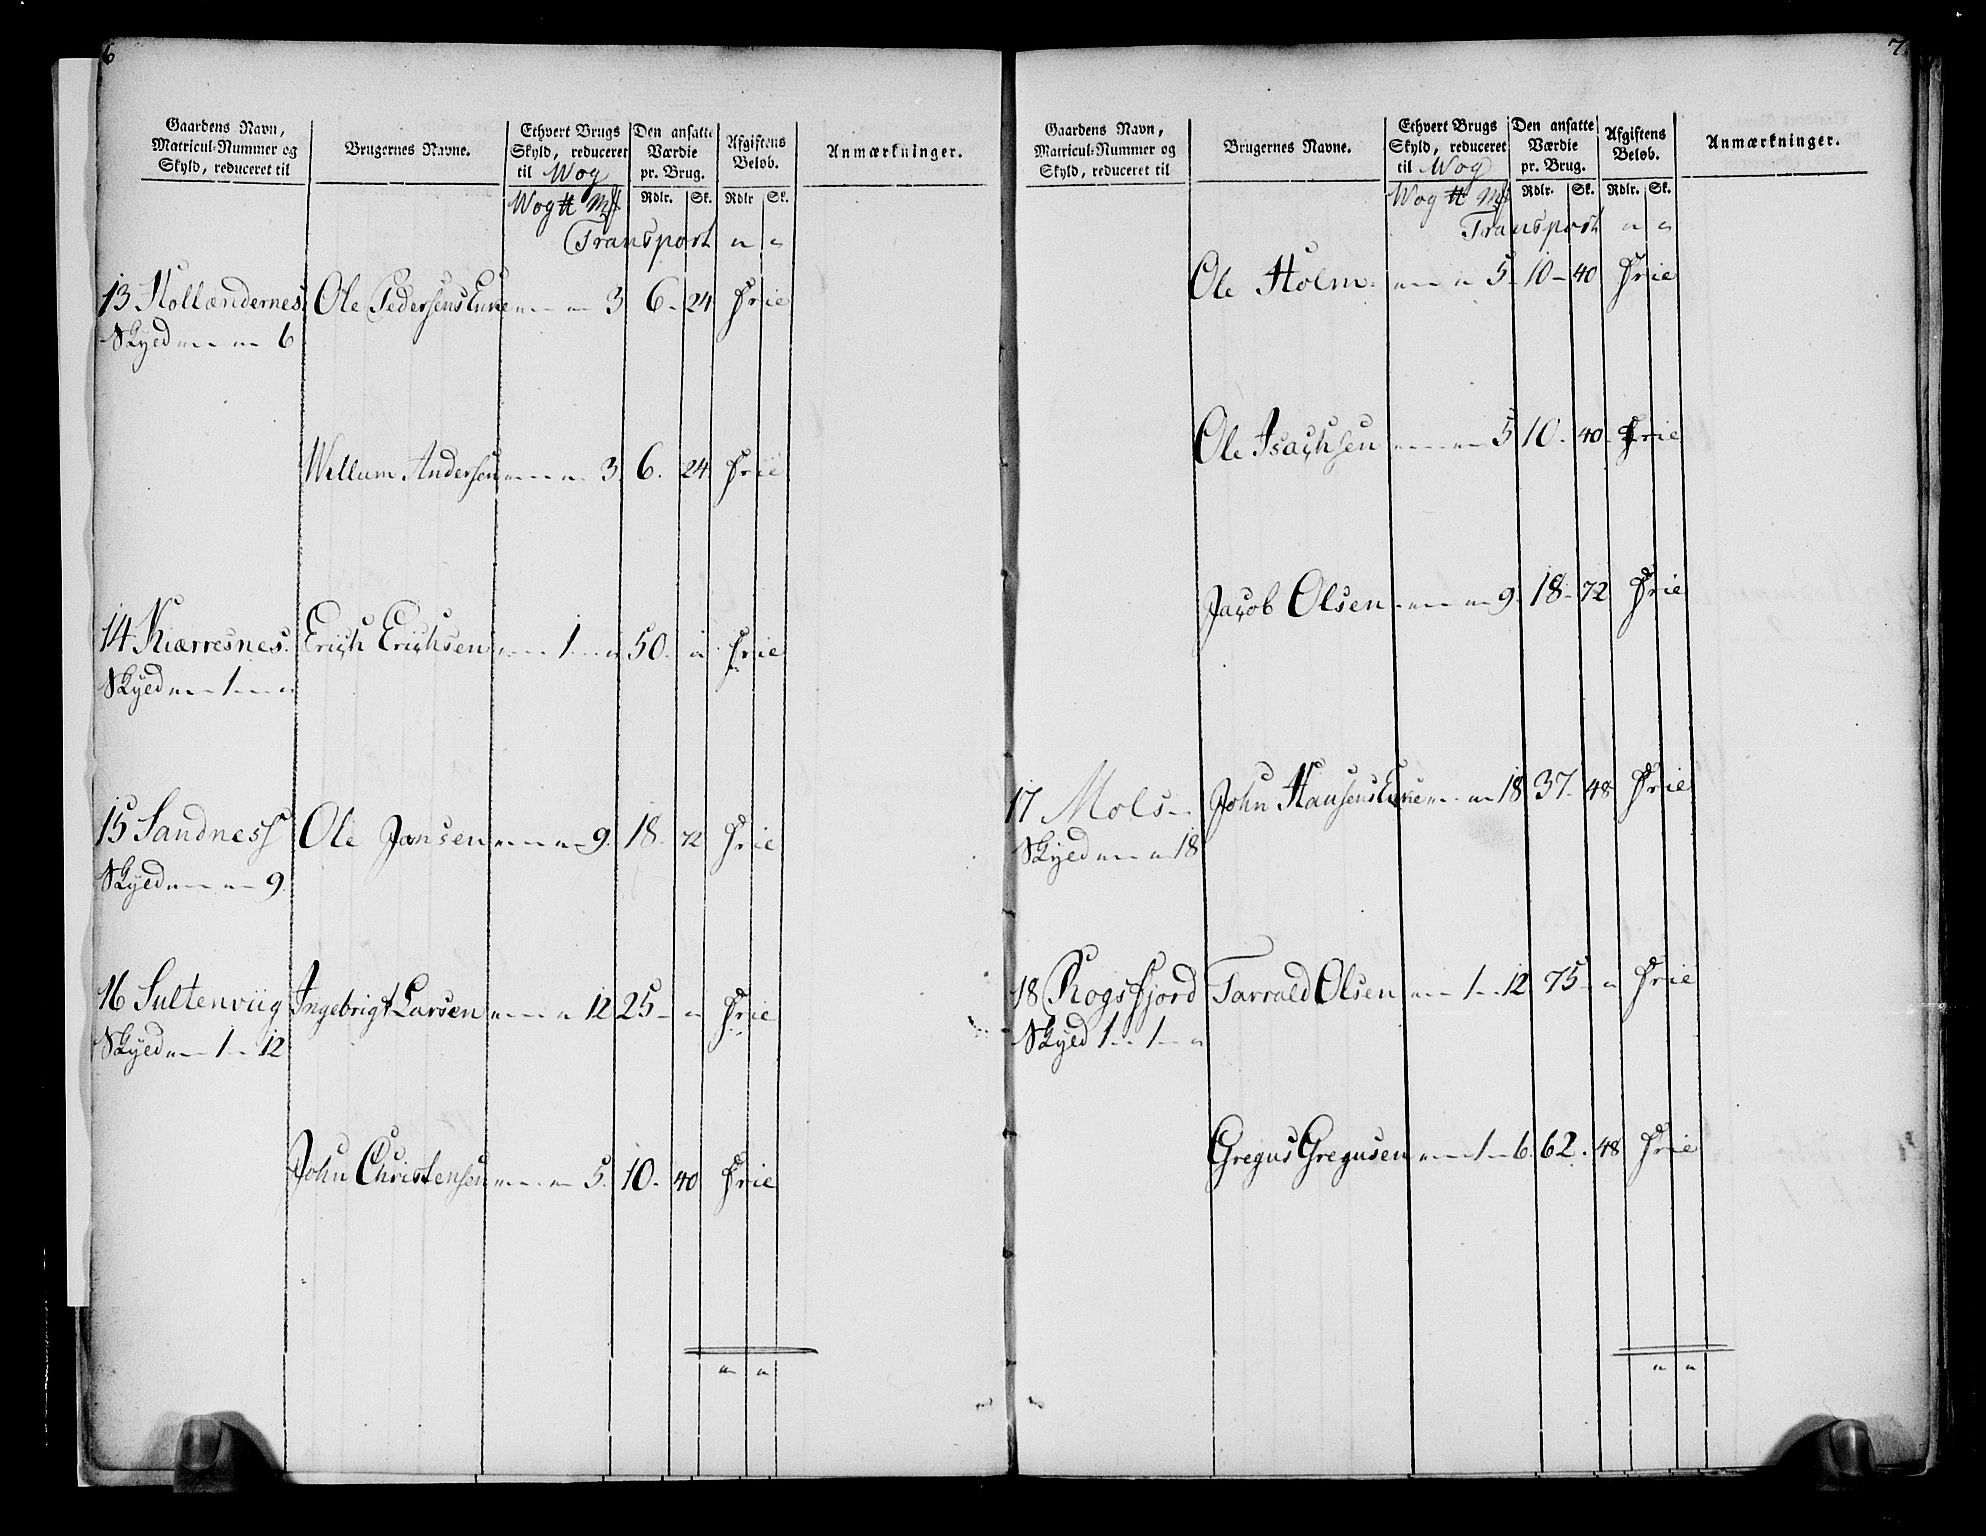 6
Gaardens Navn, Matricul-Nummer og Skyld, reduceret til
Brugernes Navne.
Ethvert Brugs Skyld, reduceret til Wog
Den ansatte Værdie pr. Brug.
Afgiftens Beløb.
Anmærkninger.
Wog ℔ Mk Rdlr. Sk. Rdlr Sk.
Transport " "
13 Hollændernes Ole Pedersens Enke " - " - 3 6 - 24 Frie
Skyed " - " - 6
Wellum Andersen " - " - 3 6 - 24 Frie
14 Kiærresnes Erich Erichsen " - 1 - " 50 - " Frie
Skyed " - 1 - "
15 Sandness Ole Jansen " - " - 9 18 - 72 Frie
Skyed " - " - 9
16 Sultenviig Ingebrigt Larsen " - " 12 25 - " Frie
Skyed " - 1 - 12
John Christensen " - " - 5 10 - 40 Frie
" "
7
Gaardens Navn, Matricul-Nummer og Skyld, reduceret til
Brugernes Navne.
Ethvert Brugs Skyld, reduceret til Wog
Den ansatte Værdie pr. Brug.
Afgiftens Beløb.
Anmærkninger.
Wog ℔ Mk Rdlr. Sk. Rdlr. Sk.
Transport " "
Ole Holm " - " 5 10 - 40 Frie
Ole Isachsen " - " - 5 10 - 40 Frie
Jacob Olsen " - " - 9 18 - 72 Frie
17 Mols John Hansens Enke " - " - 18 37 - 48 Frie
Skyed " - " - 18
18 Rogsfjord Tarrald Olsen " - 1 - 12 75 - " Frie
Skyed 1 - 1 - "
Gregus Gregusen " - 1 - 6 62 - 48 Frie
" "